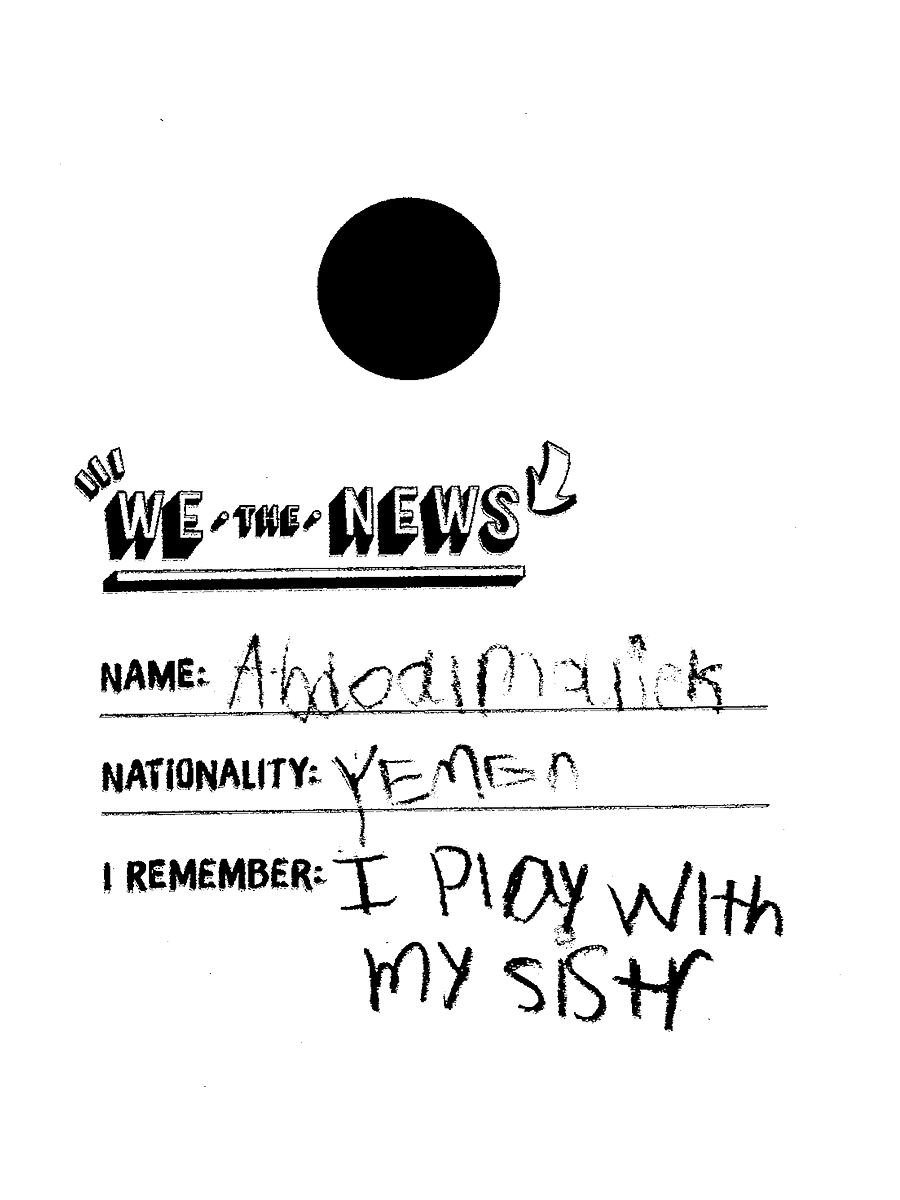 WE · THE · NEWS
NAME: Abdoalmalick
NATIONALITY: YEMEn
I REMEMBER: I Play With
my SiStr